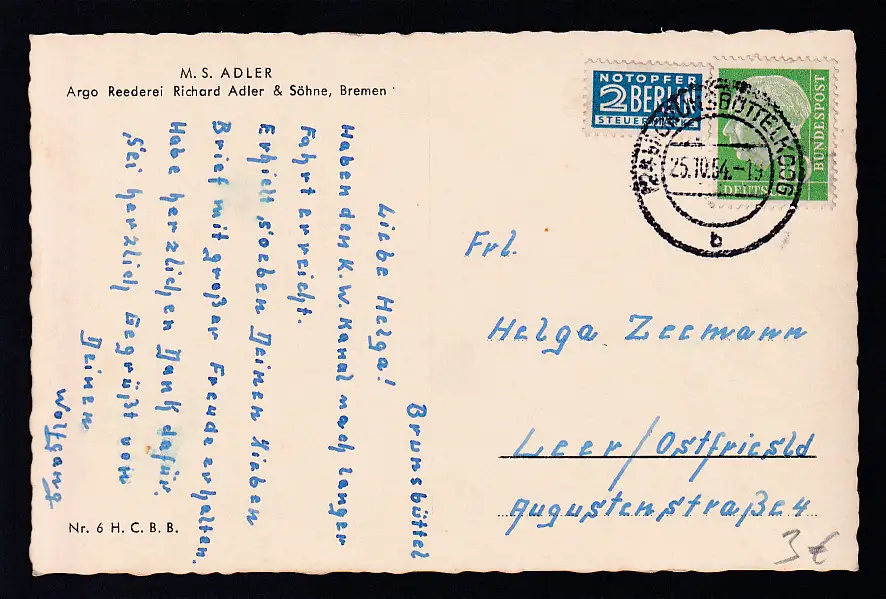 M. S. ADLER
Argo Reederei Richard Adler & Söhne, Bremen
Brunsbüttel
Liebe Helga!
Haben den K.W. Kanal nach langer
Fahrt erreicht.
Erhielt soeben Deinen lieben
Brief mit großer Freude erhalten.
Habe herzlichen Dank dafür.
Sei herzlich Gegrüßt von
Deinen
Wolfgang
Nr. 6 H. C. B. B.
NOTOPFER
2 BERLIN
STEUERMARKE
DEUTSCHE
BUNDESPOST
BRUNSBÜTTELKOOG
25.10.54.-19
b
Frl.
Helga Zeemann
Leer/Ostfriesld
Augustenstraße 4
3 €